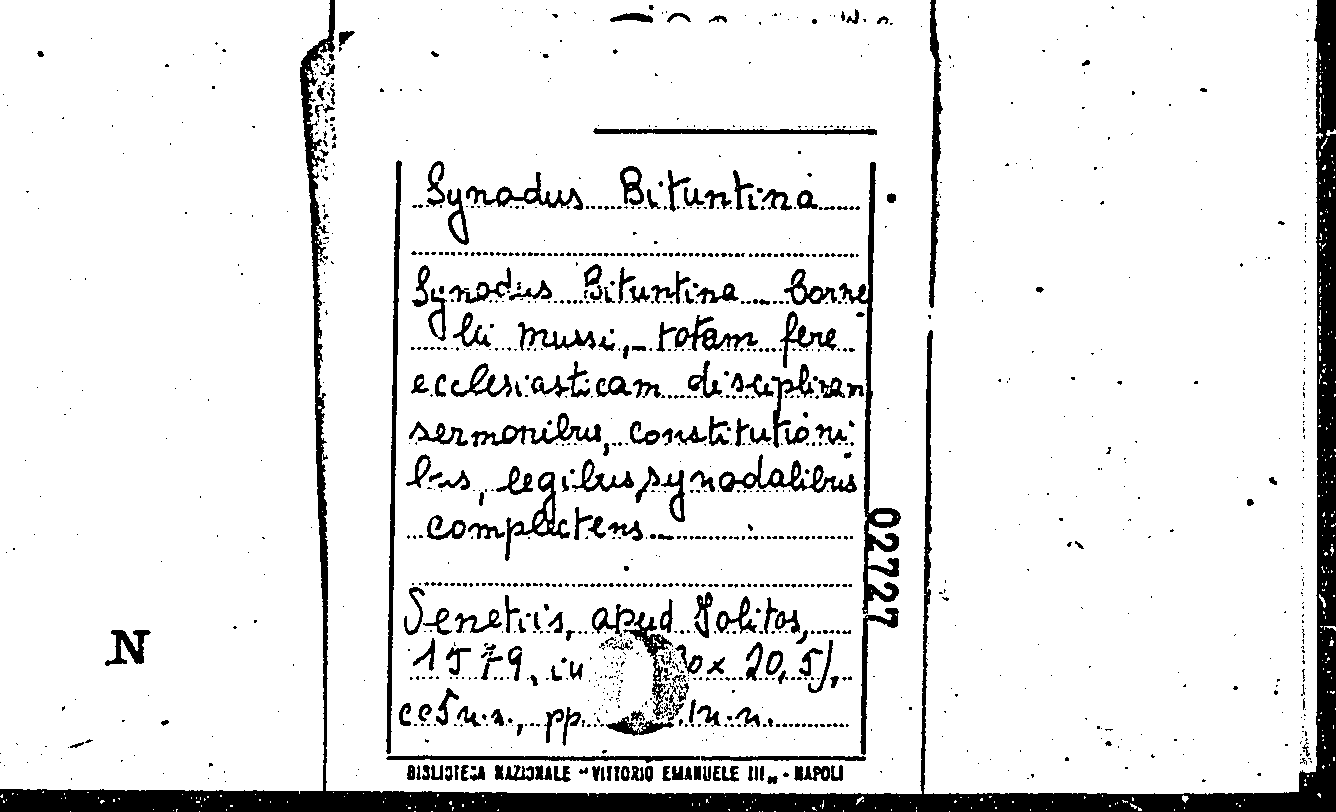 Synodus Bituntina
Synodus Bituntina ... Corne-
lii Mussi, totam fere
ecclesiasticam disciplinam
sermonibus, constitutioni-
bus, legibus synodalibus
complectens...
02727
Venetiis, apud Jolitos,
1579, in 20,5),
cc 5 n.n., pp. n.n.
N
BIBLIOTECA NAZIONALE "VITTORIO EMANUELE III„ - NAPOLI